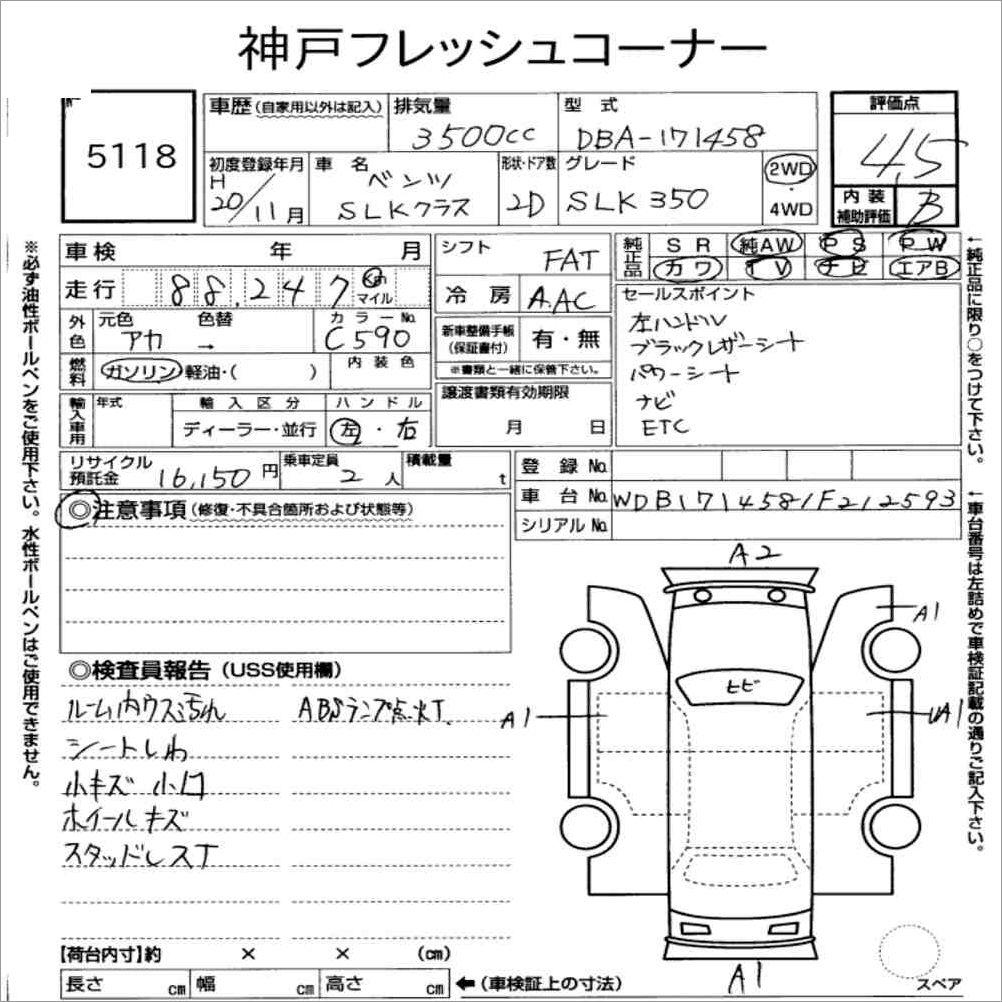 神戸フレッシュコーナー
5118
車歴(自家用以外は記入)
排気量
3500cc
型 式
DBA-171458
評価点
4.5
初度登録年月
H
20/11月
車 名
ベンツ
SLKクラス
形状・ドア数
2D
グレード
SLK 350
2WD
・
4WD
内装
補助評価
B
※必ず油性ボールペンをご使用下さい。水性ボールペンはご使用できません。
車検 年 月
シフト
FAT
純正品
SR 純AW PS PW
カワ TV ナビ エアB
走行 88,247 Km マイル
冷 房
A.AC
セールスポイント
左ハンドル
ブラックレザーシート
パワーシート
ナビ
ETC
外色
元色
アカ
色替
→
カラーNo.
C590
新車整備手帳
(保証書付)
有・無
※書類と一緒に保管下さい。
燃料
ガソリン 軽油・( )
内装色
譲渡書類有効期限
月 日
輸入車用
年式
輸入区分
ディーラー・並行
ハンドル
左・右
リサイクル
預託金
16,150円
乗車定員
2人
積載量
t
登 録 No.
車 台 No.
WDB1714581F212593
シリアル No.
◎注意事項(修復・不具合箇所および状態等)
←純正品に限り○をつけて下さい。
←車台番号は左詰めで車検証記載の通りご記入下さい。
◎検査員報告(USS使用欄)
ルーム内ウスミ汚れ
ABSランプ点灯
シートしわ
小キズ 小凹
ホイールキズ
スタッドレスT
A2
A1
ヒビ
A1
UA1
A1
スペア
【荷台内寸】約 × × (cm)
長さ cm 幅 cm 高さ cm
←(車検証上の寸法)